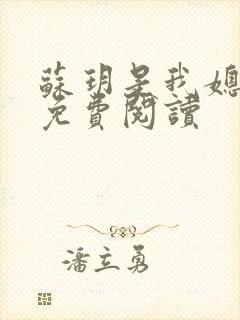 蘇玥是我媳
免費閱讀
潘立勇